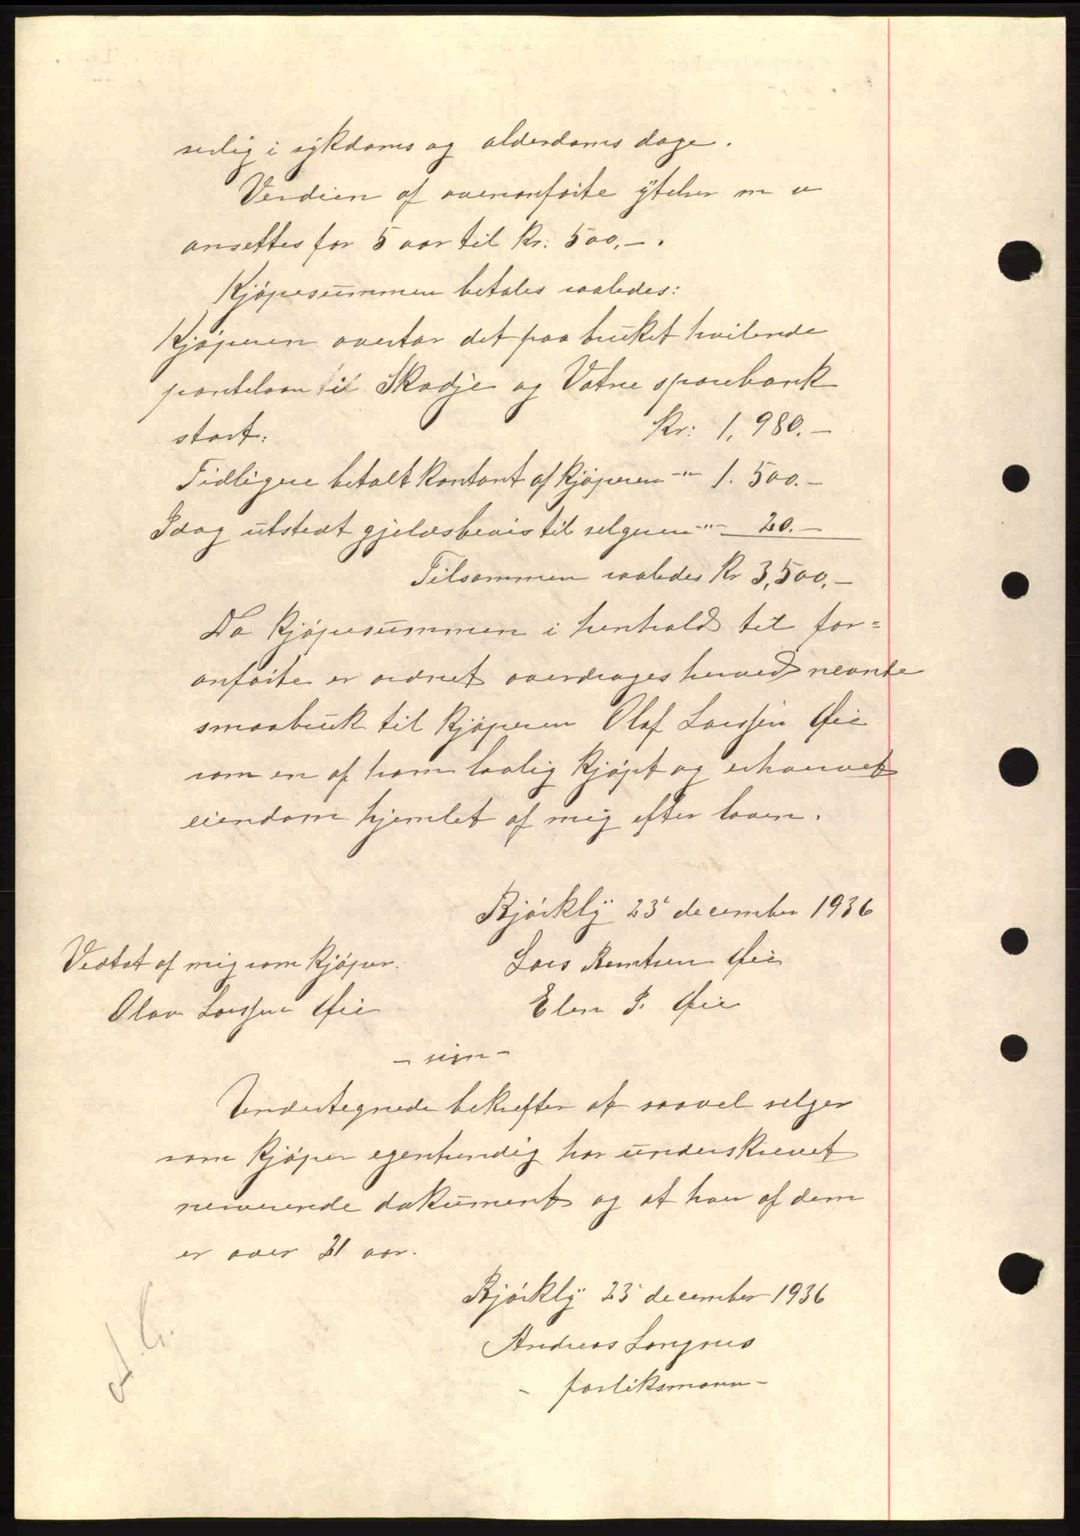 serlig i sykdoms og alderdoms dage.
Verdien af ovenanførte ÿtelser m v
ansettes for 5 aar til Kr: 500,-.
Kjøpesummen betales saaledes:
Kjøperen overtar det paa bruket hvilende
pantelaan til Skodje og Vatne sparebank
stort:    Kr: 1,980.-
Tidligere betalt kontant af kjøperen -"- 1.500.-
Idag utstedt gjeldsbevis til selgeren -"- 20.-
Tilsammen saaledes Kr 3,500,-
Da kjøpesummen i henhold til for=
anførte er ordnet overdrages herved nevnte
smaabruk til kjøperen Olaf Larssen Øie
som en af ham lovlig kjøpt og erhvervet
eiendom hjemlet af mig efter loven.
Bjørklÿ 23 december 1936
Vedtat af mig som kjøper.    Lars Berntsen Øie
Olav Larssen Øie    Elen P. Øie
- sign -
Undertegnede bekrefter at saavel selger
som kjøper egenhendig har underskrevet
nerverende dokument og at hver af dem
er over 21 aar.
Bjørklÿ 23 december 1936
Andreas Longnes
- forliksmann -
A. G.